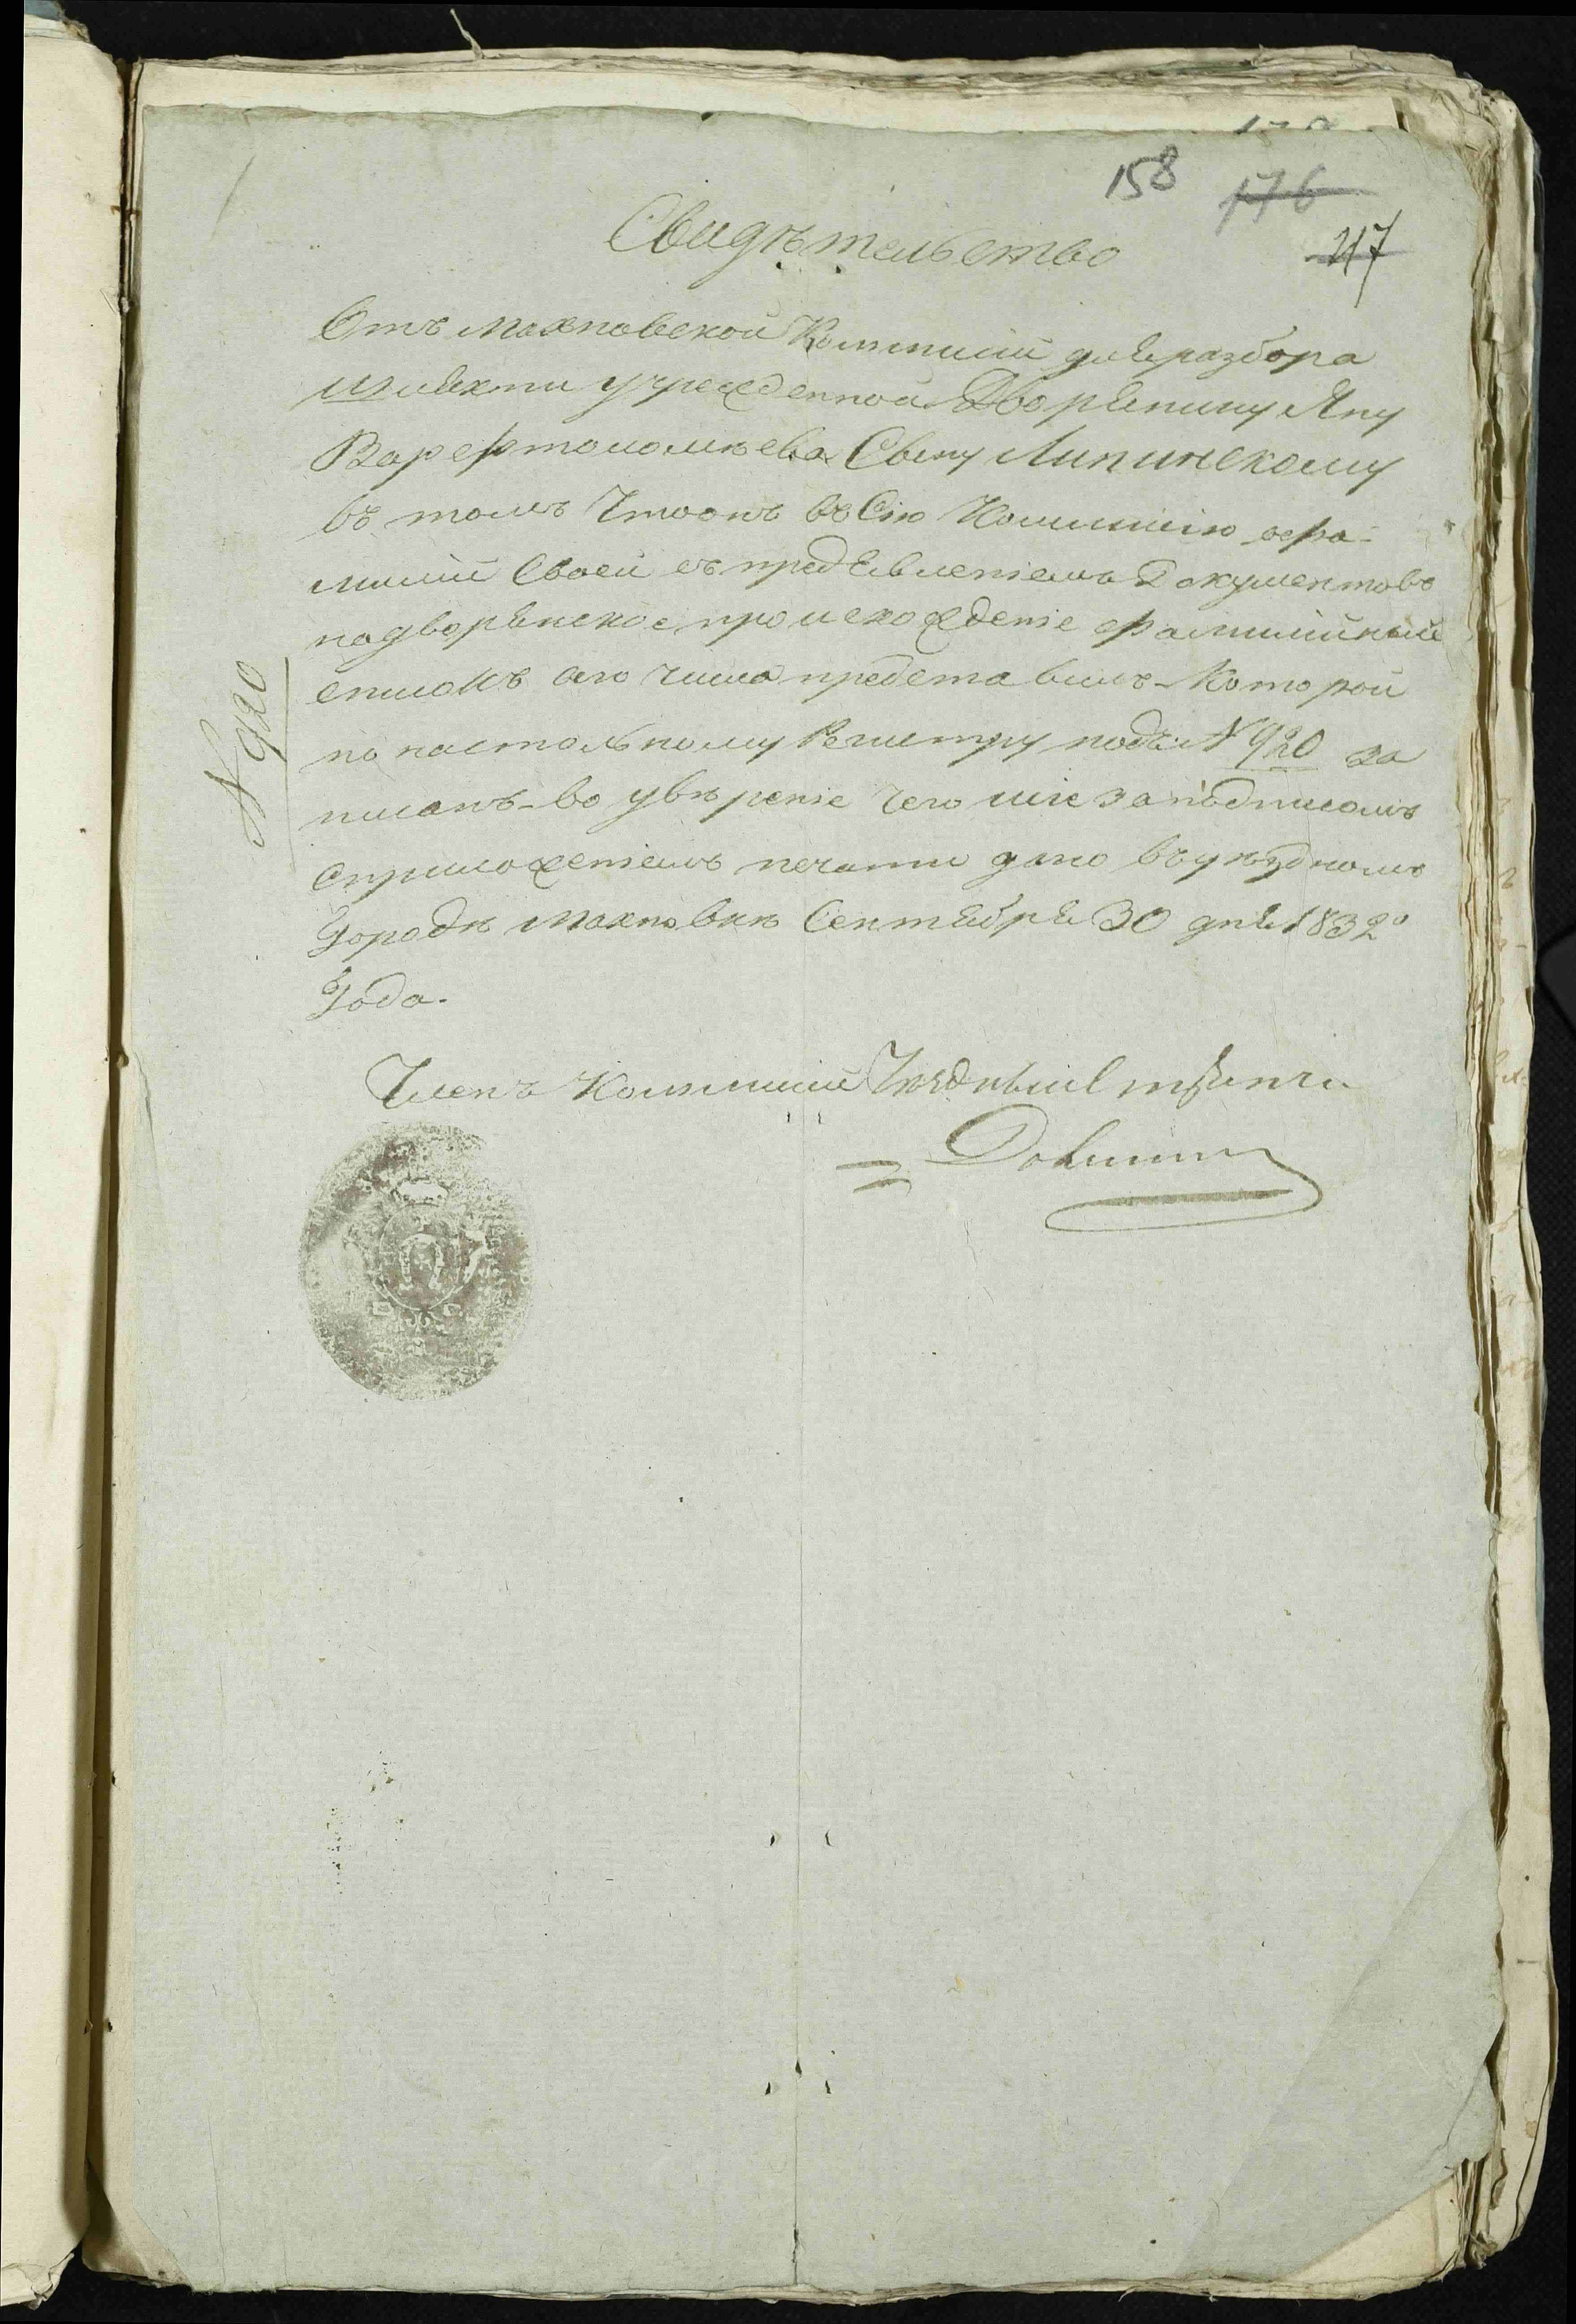 158 176
217
Свидѣтельство
Отъ Махновской Коммиссіи для разбора
шляхты учрежденной Дворянину Яну
Варфтоломѣева Сыну Липинскому
въ томъ что онъ въ Сію Коммиссію о фа-
миліи Своей съ предъявленіемъ Документовъ
на дворянское происхожденіе фамилійный
списокъ сего числа представилъ которой
по настольному Регистру подъ № 920 за
писанъ - во увѣреніе чего сіе за подписомъ
с приложеніемъ печати дано въ уѣздномъ
Городѣ Махновкѣ Сентября 30 дня 1832го
Года.
№ 920
Членъ Коммиссіи Уѣздный Стряпчій